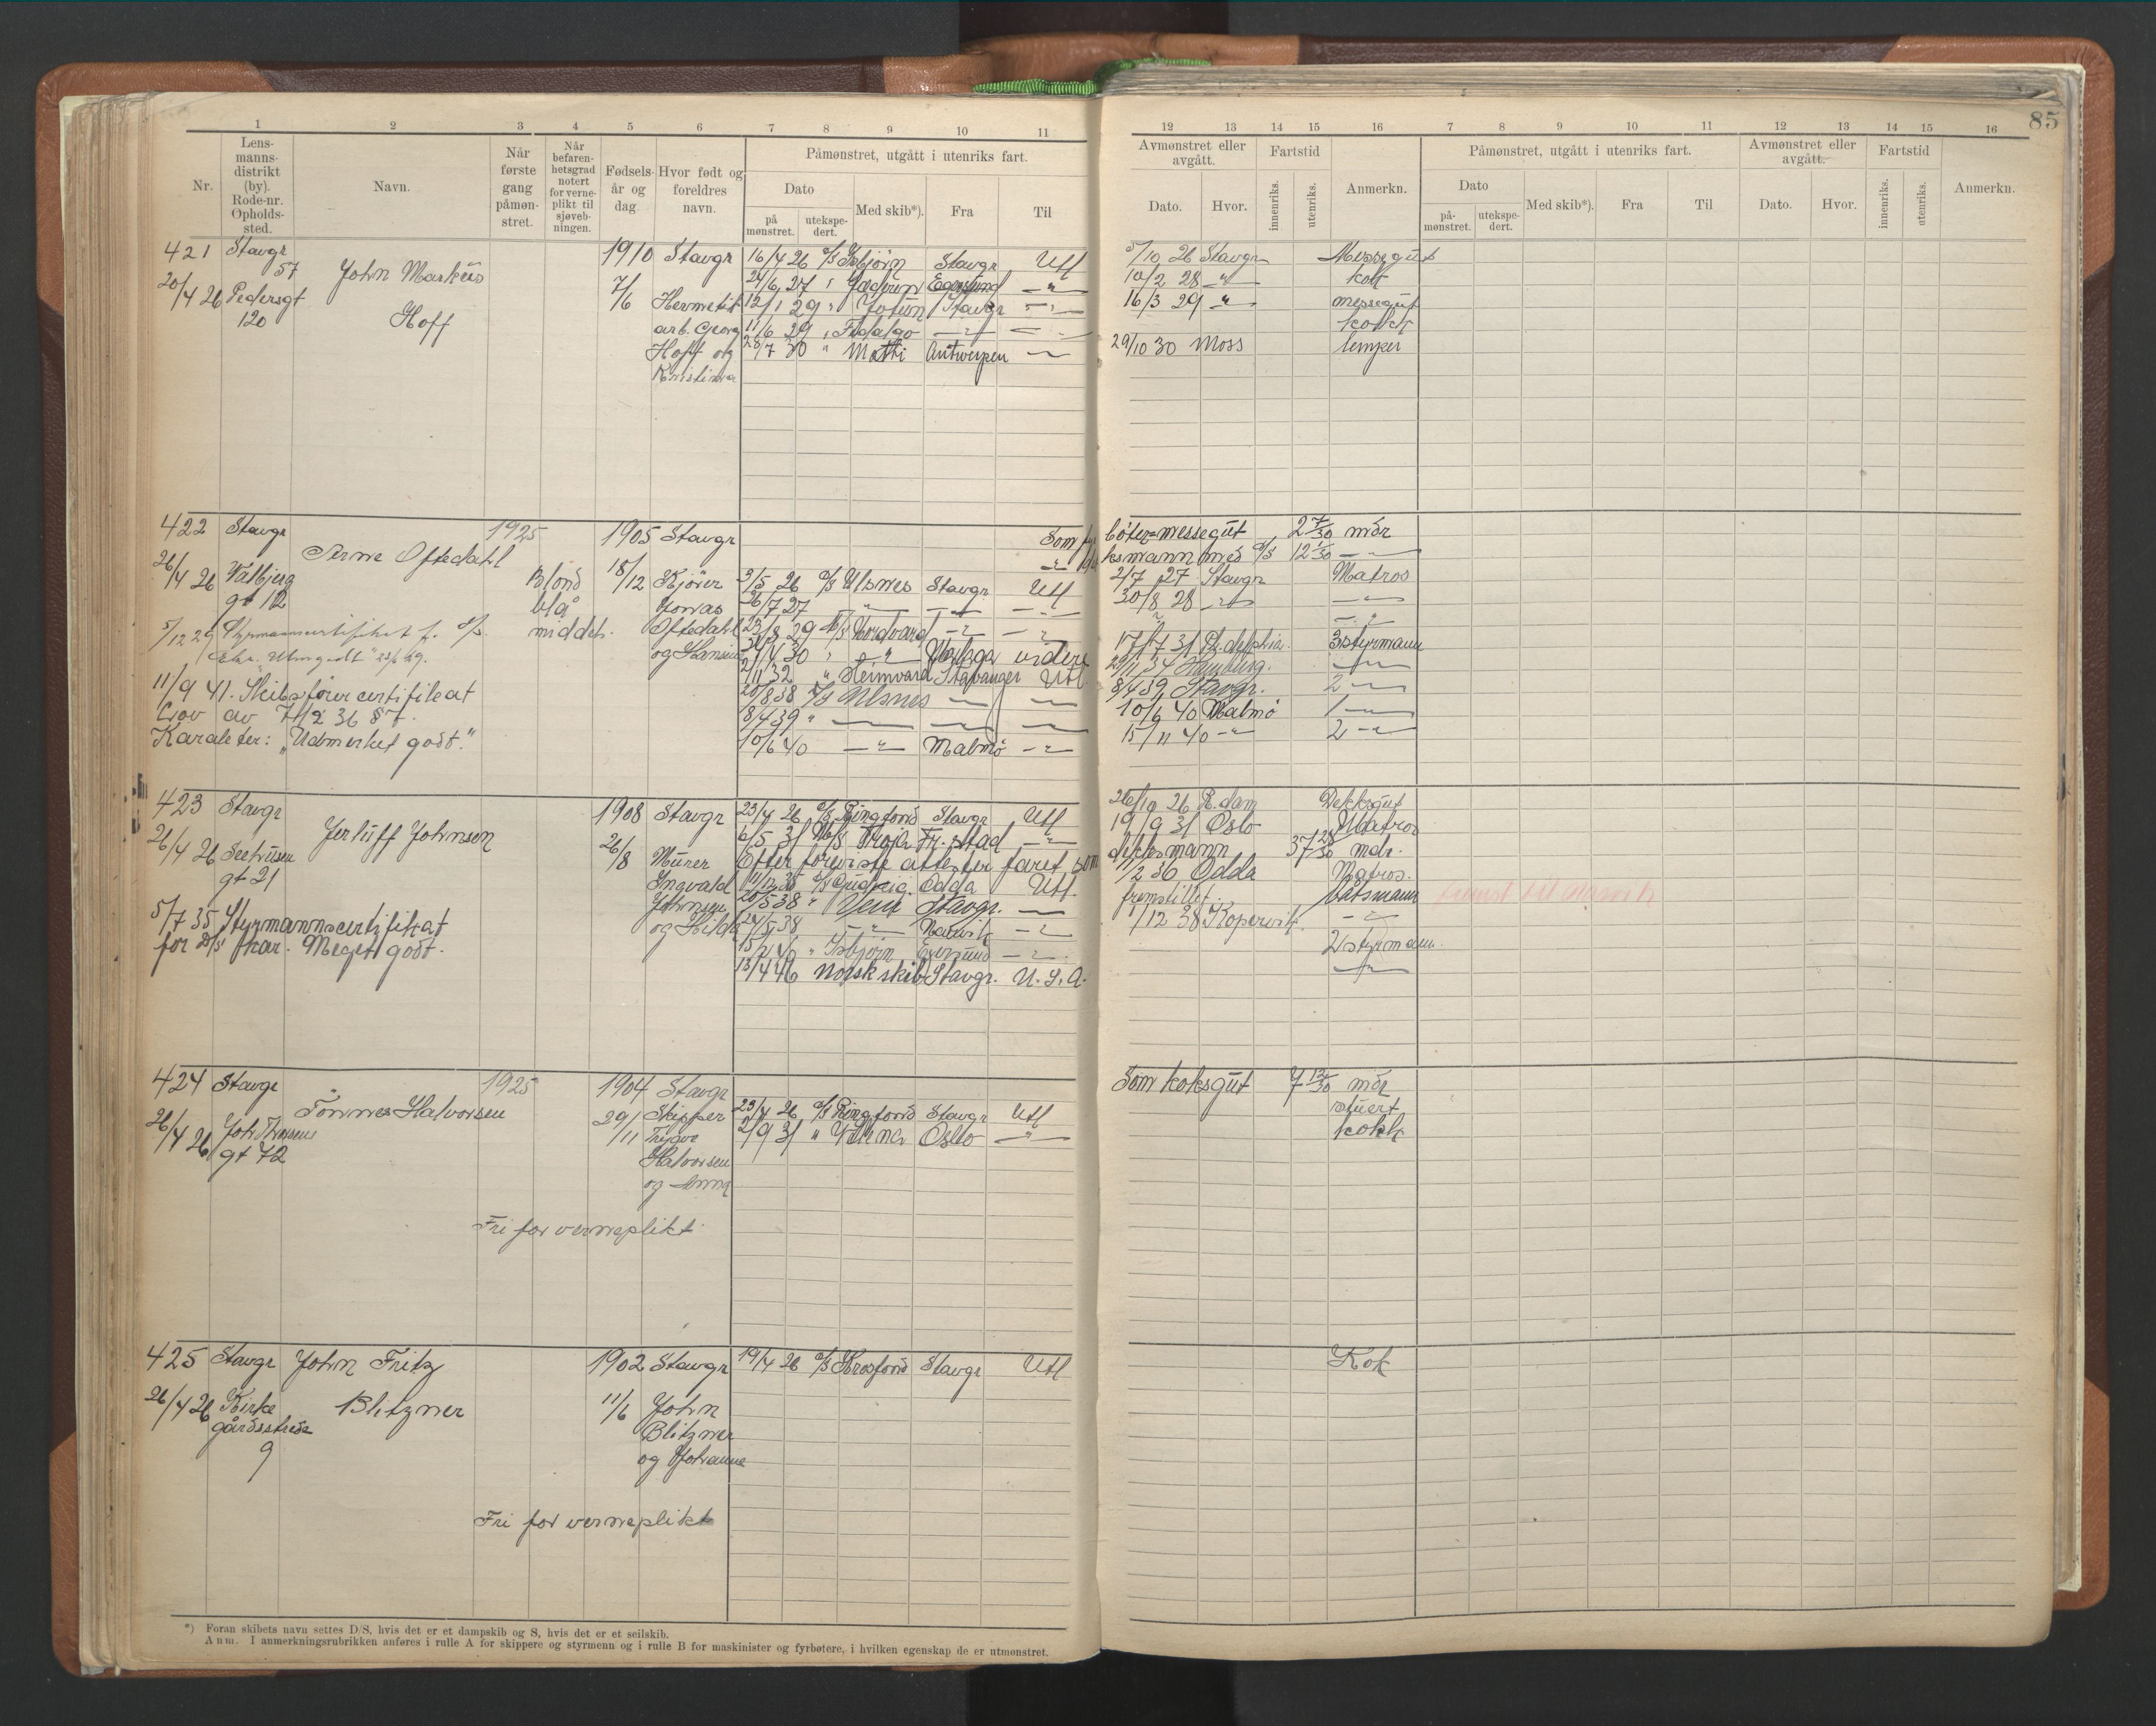 85
1 2 3 4 5 6 7 8 9 10 11
12 13 14 15 16 7 8 9 10 11 12 13 14 15 16
Nr.
Lens-
manns-
distrikt
(by).
Rode-nr.
Opholds-
sted.
Navn.
Når
første
gang
påmøn-
stret.
Når
befaren-
hetsgrad
notert
for verne-
plikt til
sjøveb-
ningen.
Fødsels-
år og
dag
Hvor født og
foreldres
navn.
Påmønstret, utgått i utenriks fart.
Dato
på
mønstret.
utekspe-
dert.
Med skib*).
Fra
Til
Avmønstret eller
avgått.
Dato.
Hvor.
Fartstid
innenriks.
utenriks.
Anmerkn.
Påmønstret, utgått i utenriks fart.
Dato
på-
mønstret.
utekspe-
dert.
Med skib*).
Fra
Til
Avmønstret eller
avgått.
Dato.
Hvor.
Fartstid
innenriks.
utenriks.
Anmerkn.
421 Stavgr
57
20/4 26 Pedersgt
120
John Markús
Hoff
1910
7/6
Stavgr
Hermetik
arb. Georg
Hoff og
Kristina
16/4 26 D/S Isbjørn Stavgr Utl 5/10 26 Stavgr Messegut
24/6 27 " Jæderen Egersund — " — 10/2 28 — " — kok
12/1 29 " Jotun Stavgr — " — 16/3 29 — " — messegut
11/6 29 " Fidalgo — " — kokk
28/7 30 " Mathi Antwerpen — " — 29/10 30 Moss lemper
422 Stavgr
26/4 26 Valbjerg
gt 12
Arne Oftedahl
1925
Blond
blå
middels
1905
18/12
Stavgr
Kjører
Jonas
Oftedahl
og Hansine
5/12 29 Styrmannscertifikat f. D/S.
11/9 41. Skibsførercertifikat
Lov av 7/12 36 § 7.
Karakter: "Udmerket godt."
Som fyrbøter=messegut 2 7/30 mdr
dekksmann med D/S 12 1/30 — " —
3/5 26 D/S Ulsnes Stavgr Utl 2/7 27 Stavgr Matros
26/7 27 — " — — " — — " — 30/8 28 — " — — " —
23/8 29 M/S Nordvard — " — — " — — " —
24/4 30 " — " — Malaga videre 17/7 31 Ph.delphia 3styrmann
2/11 32 " Heimvard Stavanger Utl. 29/11 34 Hamburg. — " —
20/8 38 D/S Ulsnes — " — — " — 8/4 39 Stavgr. 2 — " —
8/4 39 " — " — — " — — " — 10/6 40 Malmø 1 — " —
10/6 40 — " — Malmø — " — 15/11 40 — " — 2 — " —
423 Stavgr
26/4 26 Seehusen
gt 21
Jerluff Johnsen
1908
26/8
Stavgr
Murer
Ingvald
Johnsen
og Hilda
5/7 35 Styrmannscertifikat
for D/S kar. Meget godt.
23/4 26 D/S Ringfond Stavgr Utl 26/10 26 R.dam Dekksgut
6/5 31 M/S Troja Fr.stad — " — 19/9 31 Oslo Matros
Efter foreviste attester faret som dekksmann 37 28/30 mdr.
11/12 35 D/S Gudveig Odda Utl. 11/2 36 Odda Matros.
20/5 38 " Veni Stavgr. — " — fremstillet. båtsmann
24/9 38 — " — Narvik — " — 1/12 38 Kopervik — " —
15/2 40 " Isbjørn Egersund — " — 2styrmann.
13/4 46 Norsk skib Stavgr. U.S.A. — " —
424 Stavgr
26/4 26 Joh. Thorsens
gt 72
Tønnes Halvorsen
1925
1904
29/11
Stavgr
Skipper
Trygve
Halvorsen
og Anna
Fri for verneplikt
Som koksgut 7 12/30 mdr
23/4 26 D/S Ringfond Stavgr Utl stuert
2/9 31 " Velma Oslo — " — kokk
425 Stavgr
26/4 26 Kirke
gårdsstrede
9
John Fritz
Blitzner
1902
11/6
Stavgr
John
Blitzner
og Johanne
19/4 26 D/S Krosfond Stavgr Utl Kok
Fri for verneplikt
*) Foran skibets navn settes D/S, hvis det er et dampskib og S, hvis det er et seilskib.
Anm. I anmerkningsrubrikken anføres i rulle A for skippere og styrmenn og i rulle B for maskinister og fyrbøtere, i hvilken egenskap de er utmønstret.